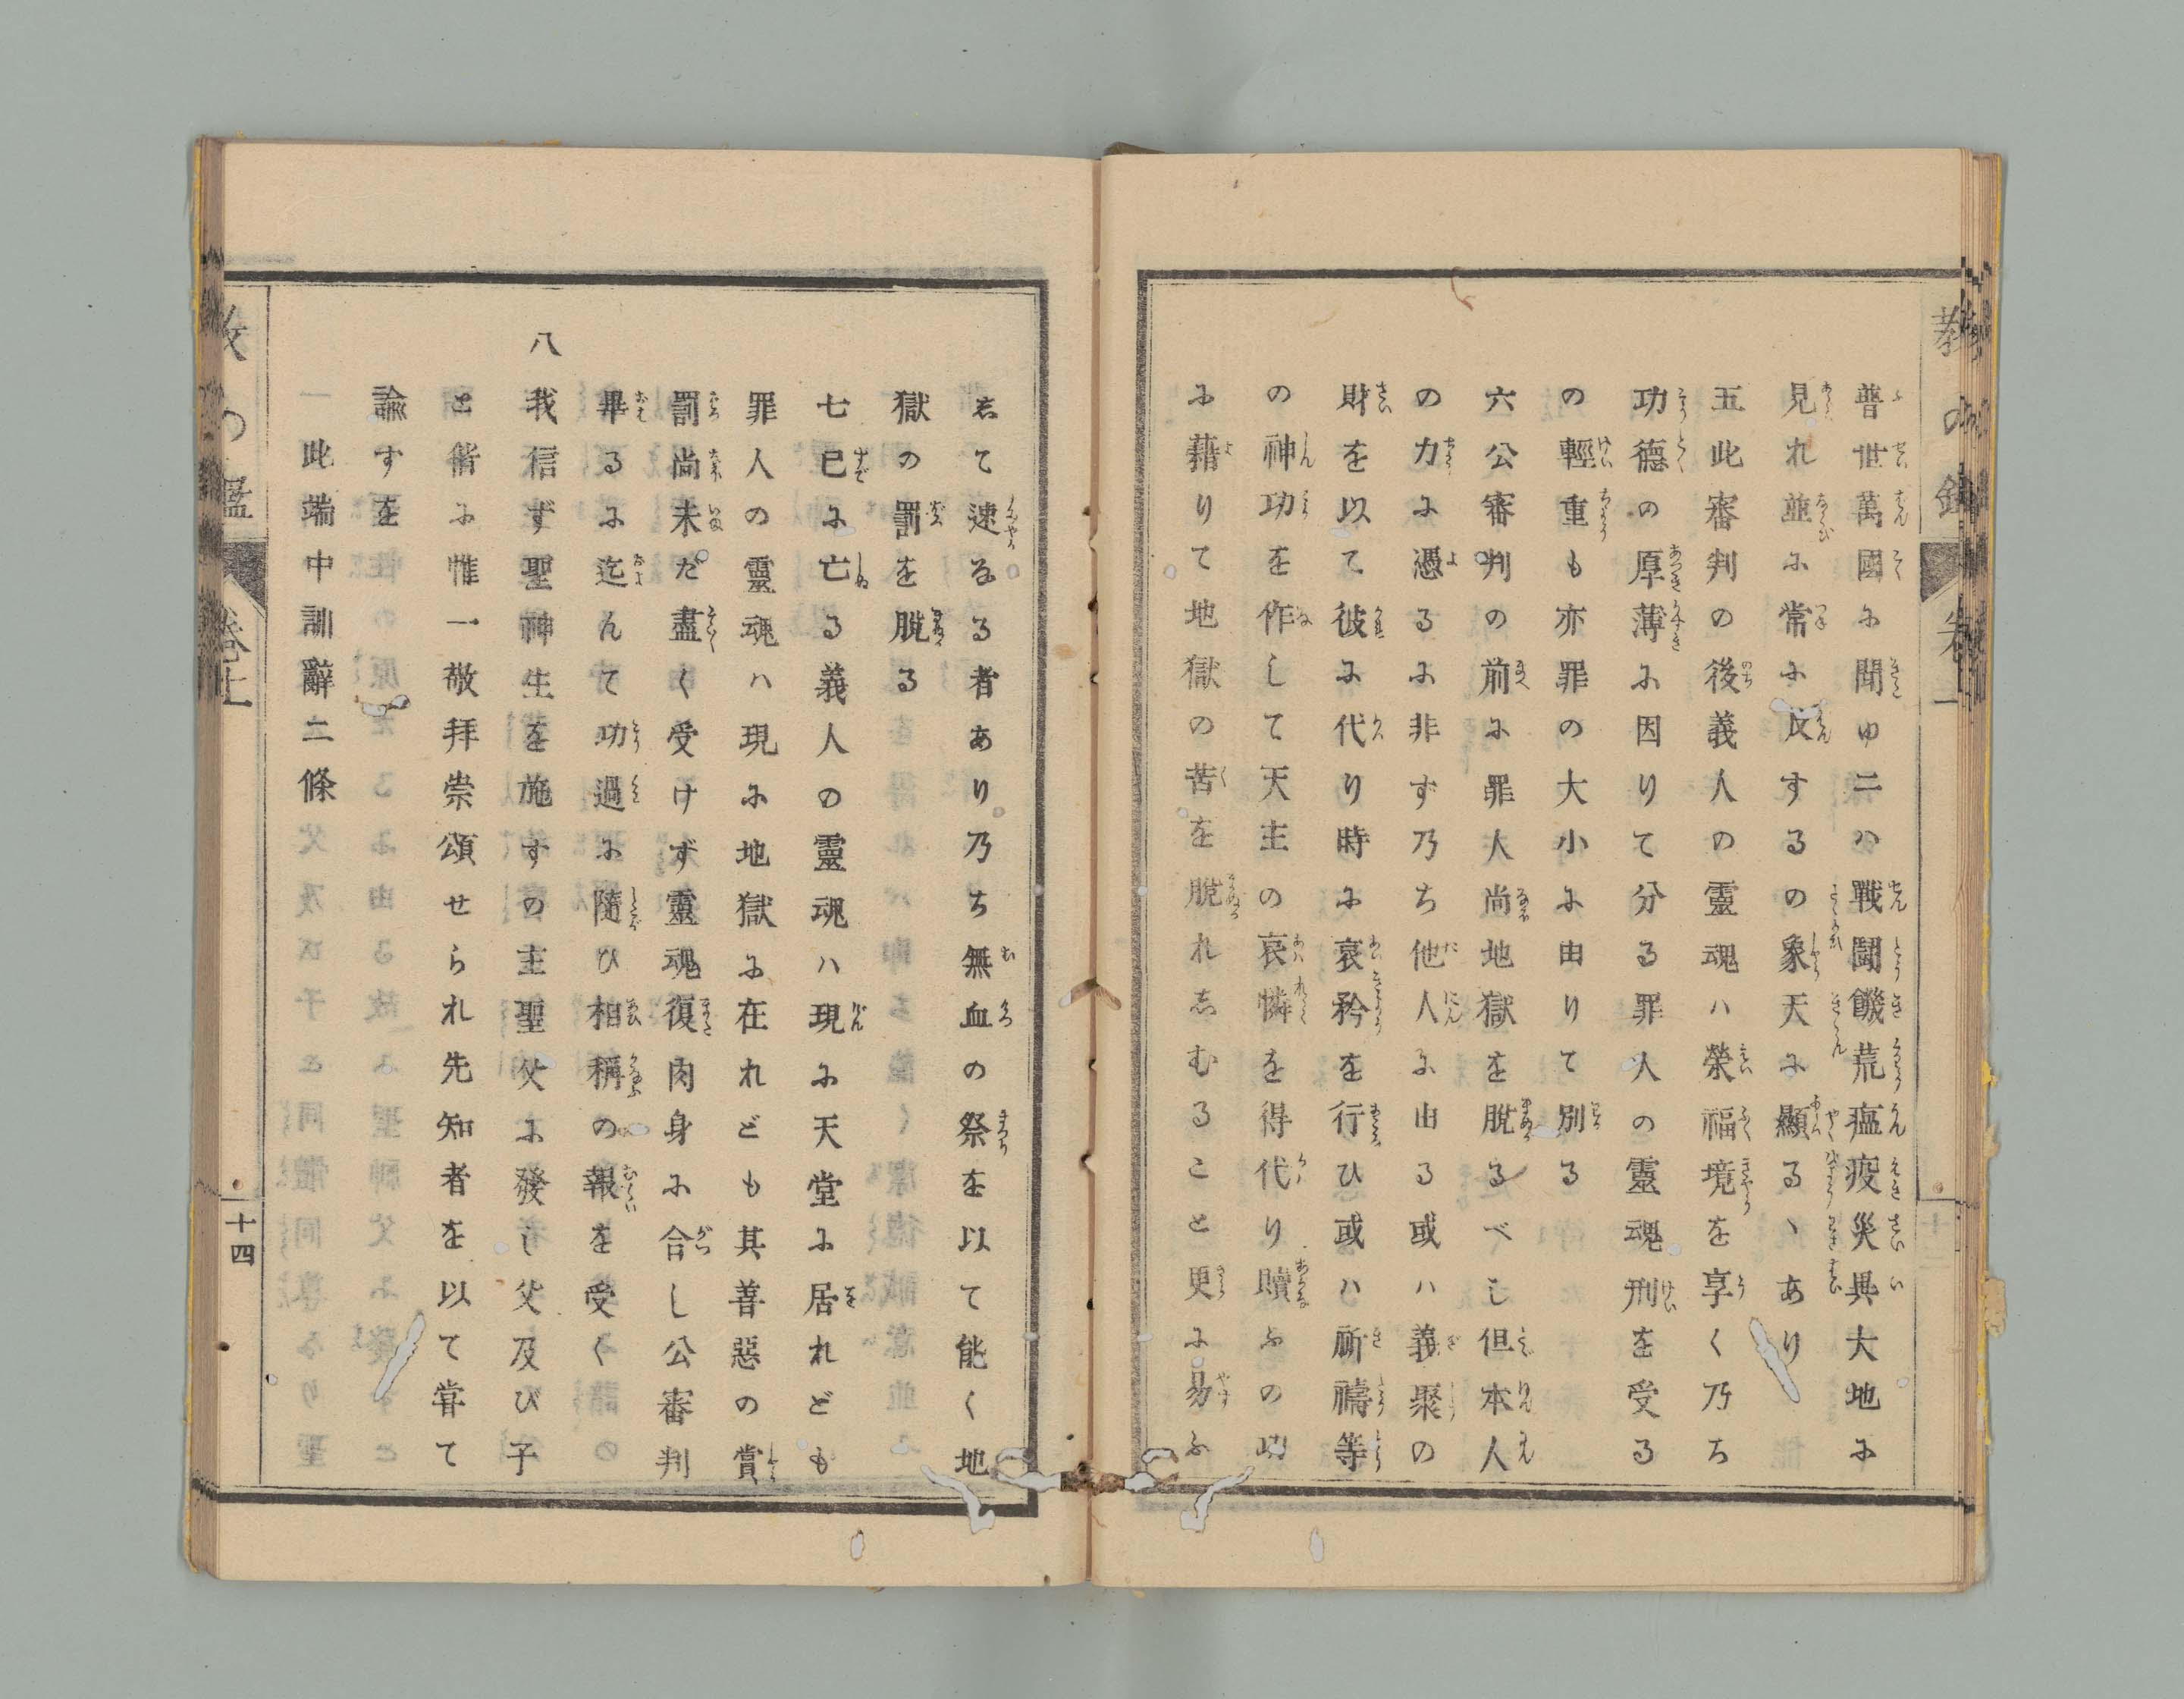 普世萬國に聞ゆ二ハ戰鬪饑荒瘟疫災異大地に
見れ並に常に反するの象天に顯るゝあり
五此審判の後義人の靈魂ハ榮福境を享く乃ち
功德の厚薄に因りて分る罪人の靈魂刑を受る
の輕重も亦罪の大小に由りて別る
六公審判の前に罪人尚地獄を脫るべし但本人
の力に憑るに非ず乃ち他人に由る或ハ義聚の
財を以て彼に代り時に哀矜を行ひ或ハ祈禱等
の神功を作して天主の哀憐を得代り贖ふの功
に藉りて地獄の苦を脫れしむること更に易ふ
して速なる者あり乃ち無血の祭を以て能く地
獄の罰を脫る
七已に亡る義人の靈魂ハ現に天堂に居れども
罪人の靈魂ハ現に地獄に在れども其善惡の賞
罰尚未だ盡く受けず靈魂復肉身に合し公審判
畢るに迄んて功過に隨ひ相稱の報を受く
八
我信ず聖神生を施すの主聖父に發し父及び子
と偕に惟一敬拜崇頌せられ先知者を以て甞て
諭すを
此端中訓辭二條
教の鑑
卷上
十四